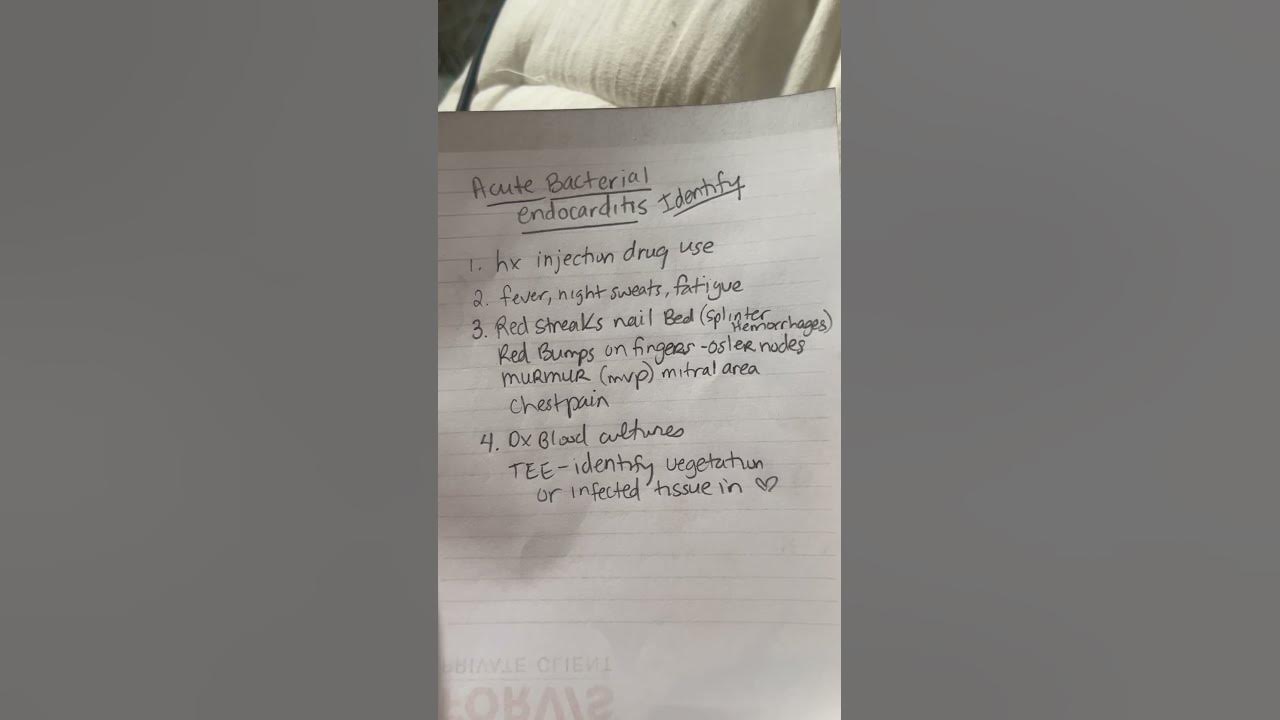 Acute Bacterial
endocarditis Identify
1. hx injection drug use
2. fever, night sweats, fatigue
3. Red streaks nail Bed (splinter
Hemorrhages)
Red Bumps on fingers - osler nodes
MURMUR (mvp) mitral area
Chest pain
4. Dx Blood cultures
TEE - identify vegetation
or infected tissue in ♡
PRIVATE CLIENT
FORV/S